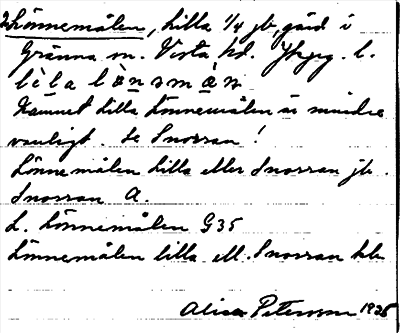 Lönnemålen, Lilla 1/4 jb, gård i
Gränna sn. Vista hd. Jkpg. l.
lìla lònsmàn
Namnet Lilla Lönnemålen är mindre
vanligt. Se Snorran!
Lönnemålen Lilla eller Snorran jb.
Snorran A.
L. Lönnemålen G35
Lönnemålen lilla ell. Snorran hb
Alice Peterson 1925